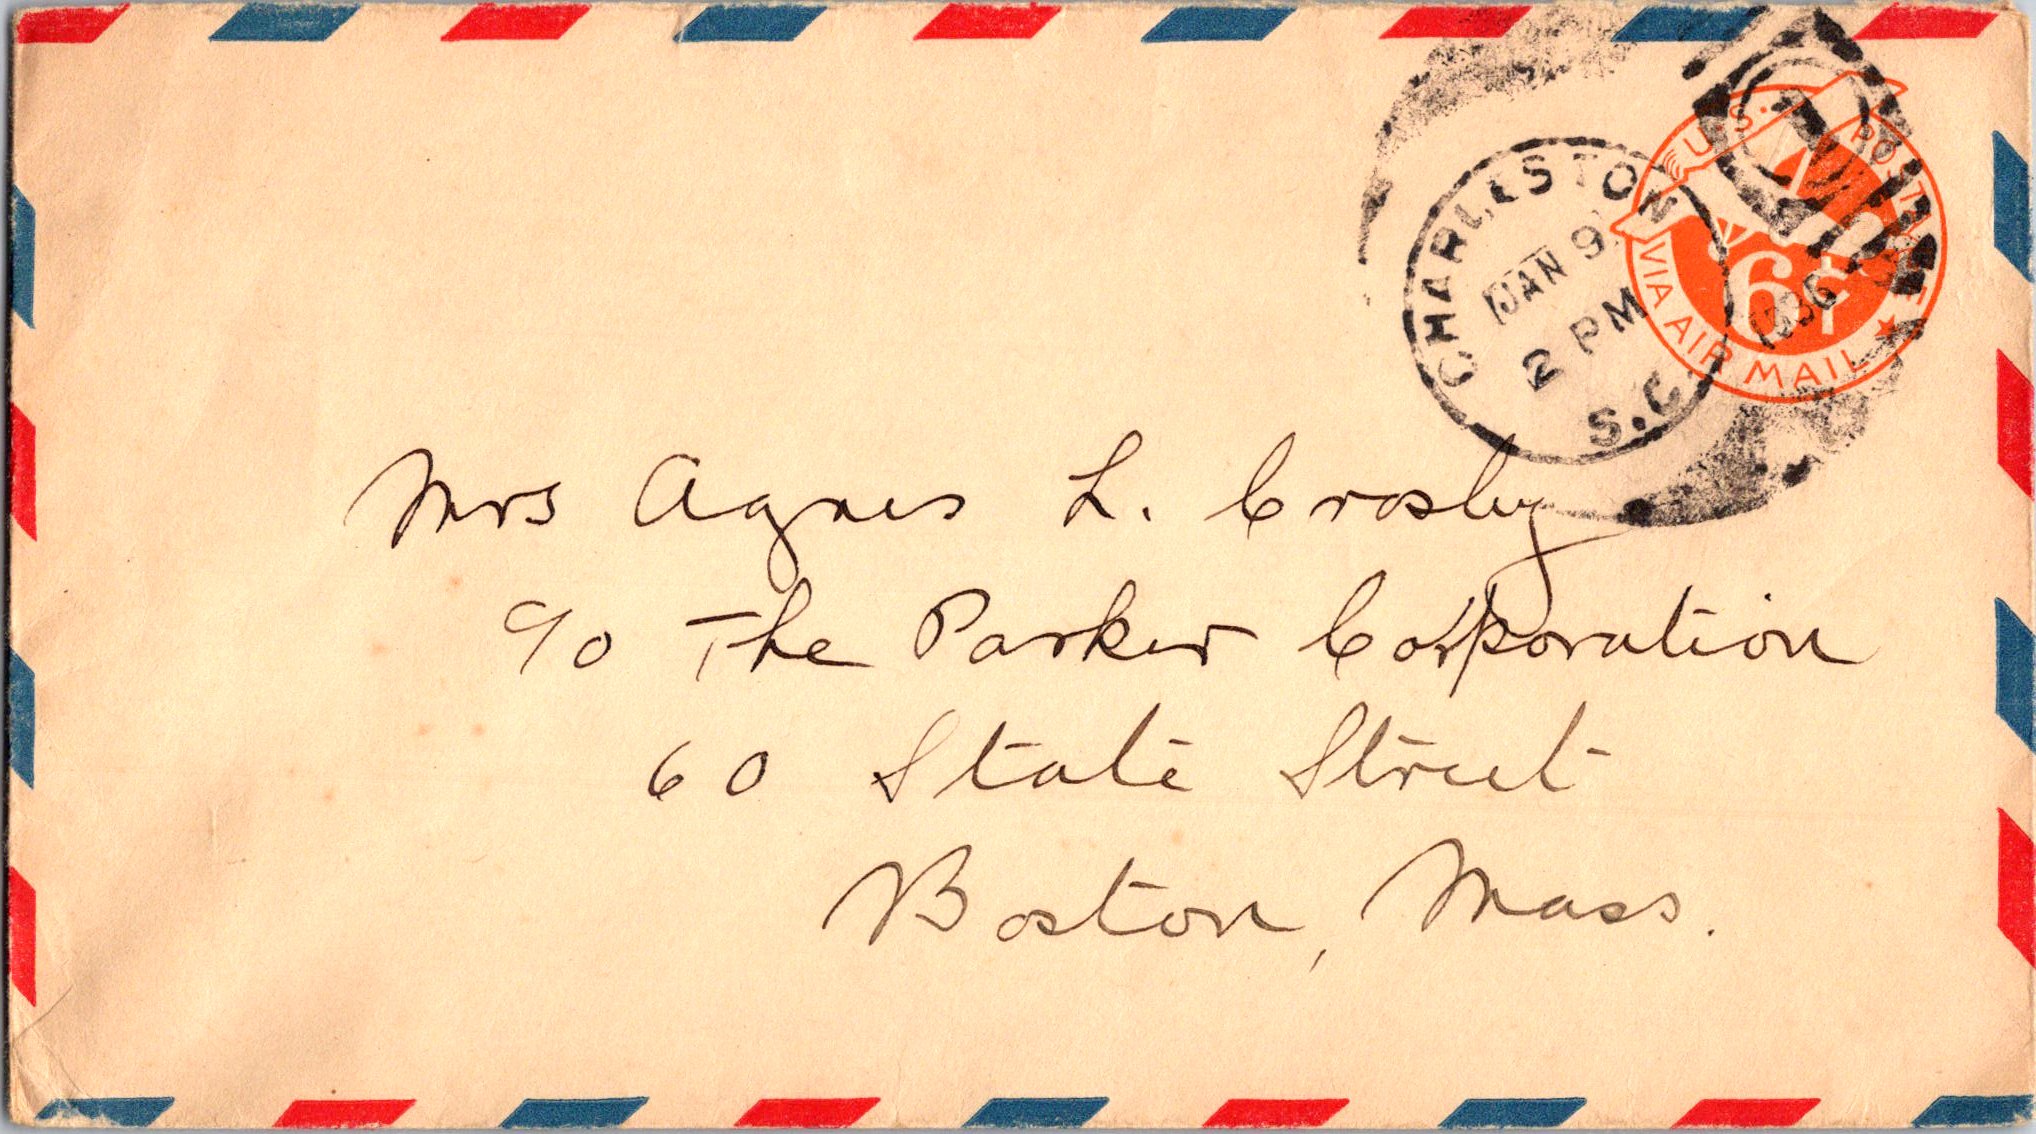 U.S. POSTAGE
6¢
VIA AIR MAIL
CHARLESTON
JAN 9
2 PM
1936
S.C.
Mrs Agnes L. Crosby
c/o The Parker Corporation
60 State Street
Boston, Mass.